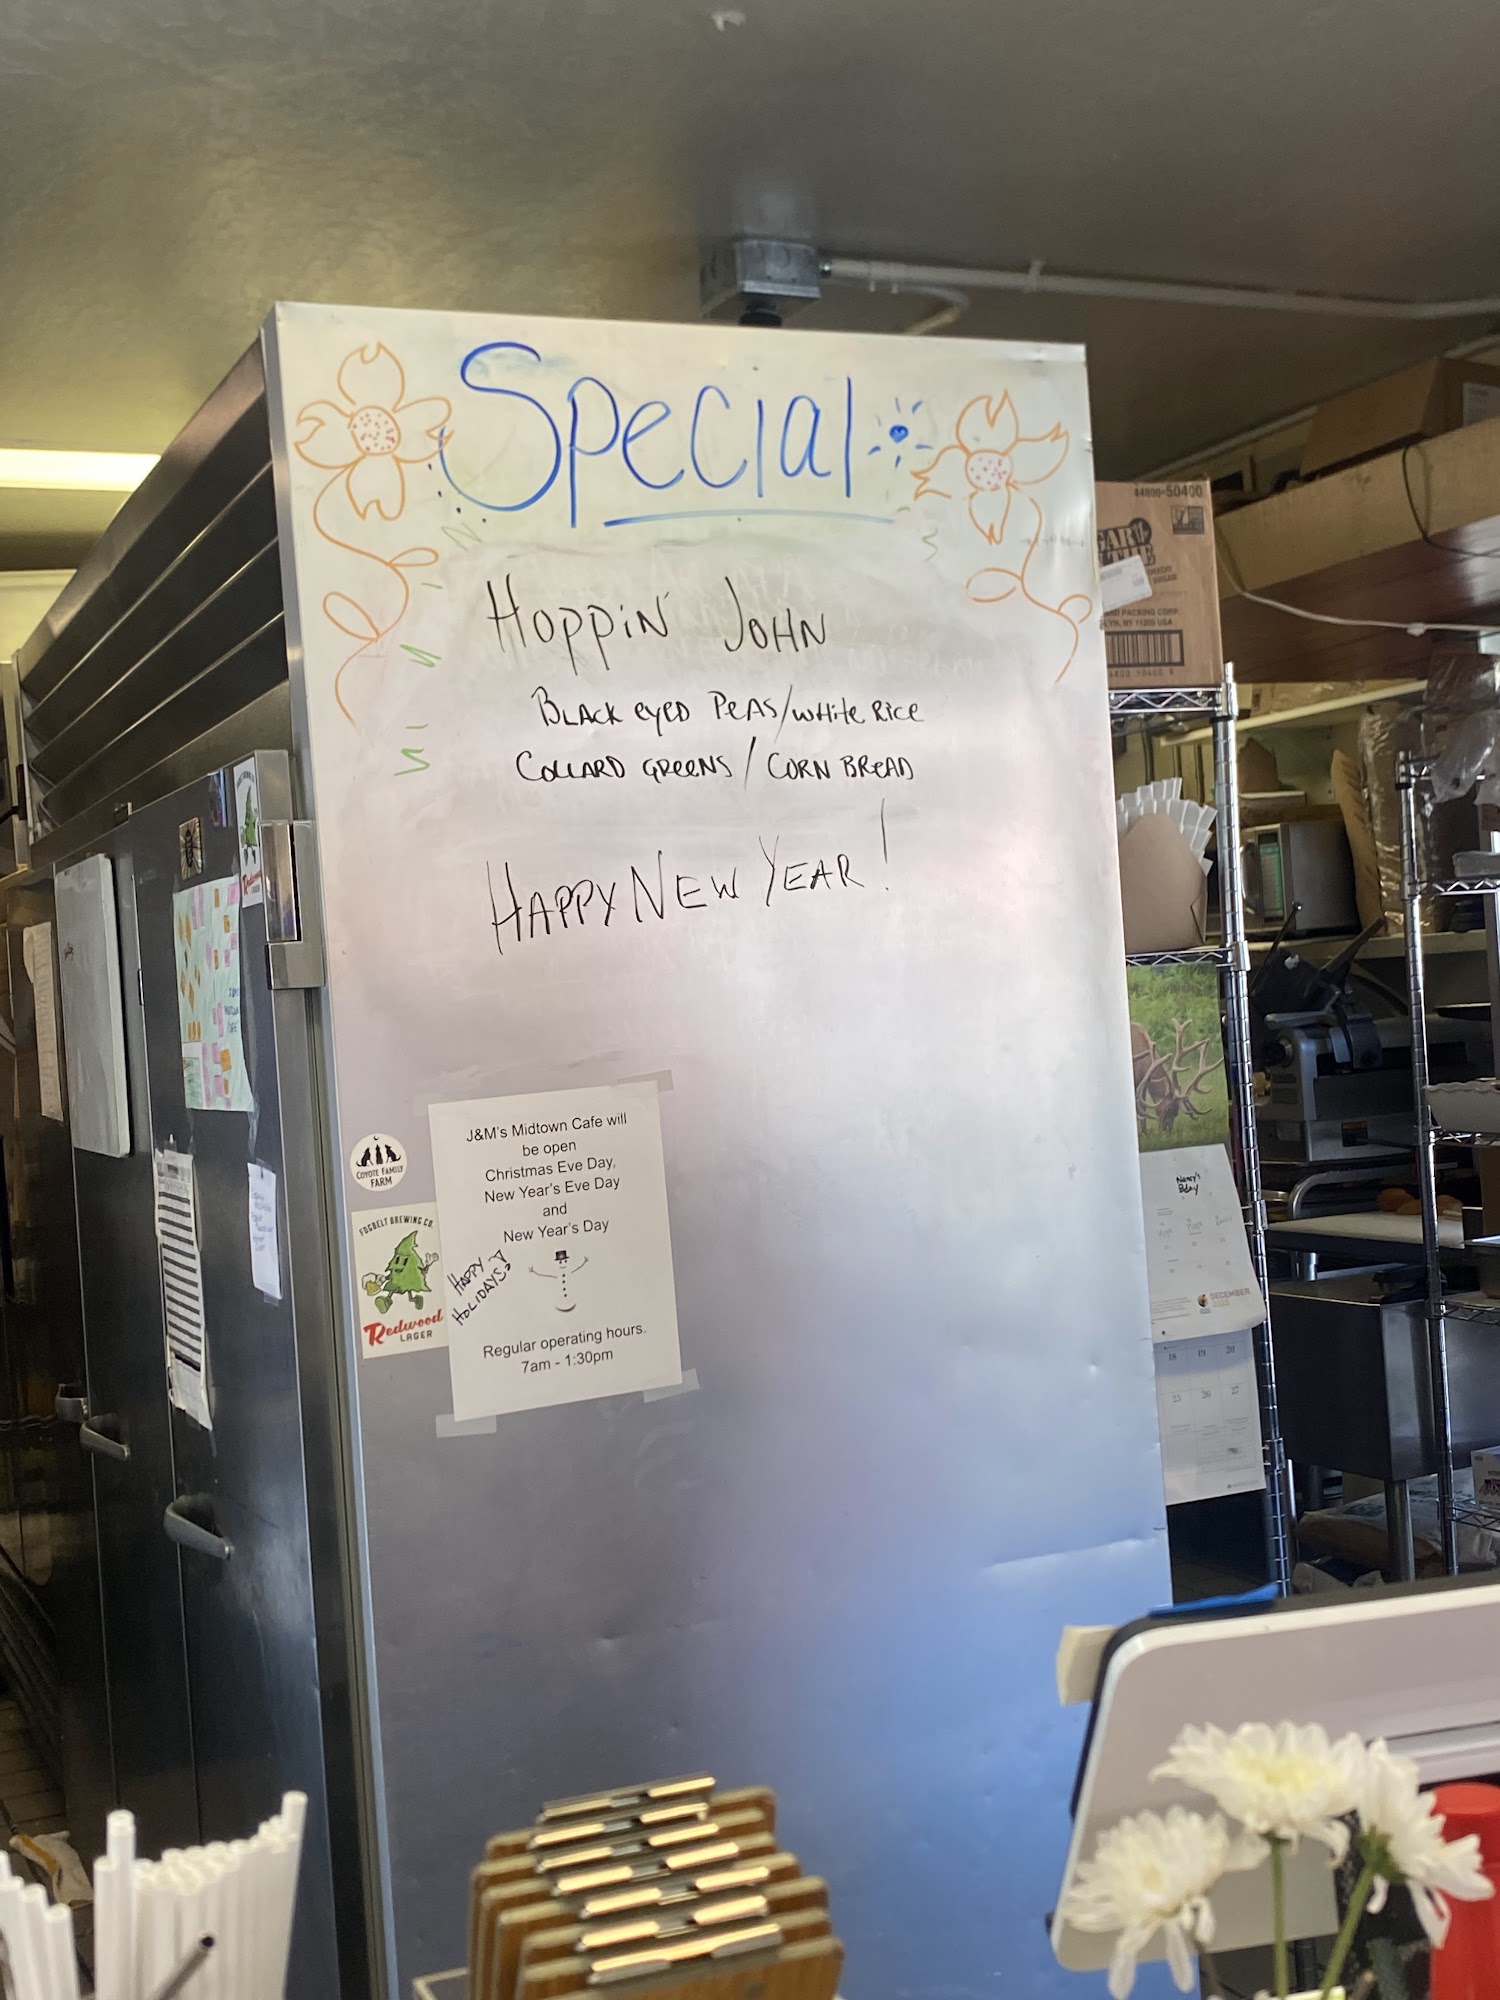 Special
Hoppin' John
Black eyed Peas/white Rice
Collard Greens / Corn Bread
Happy New Year!
J&M's Midtown Cafe will
be open
Christmas Eve Day,
New Year's Eve Day
and
New Year's Day
Happy
Holidays
Regular operating hours.
7am - 1:30pm
COYOTE FAMILY
FARM
FOGBELT BREWING CO.
Redwood
LAGER
44800-50400
PACKING CORP.
NY 11205 USA
Nancy's
Bday
DECEMBER
18 19 20
26 27